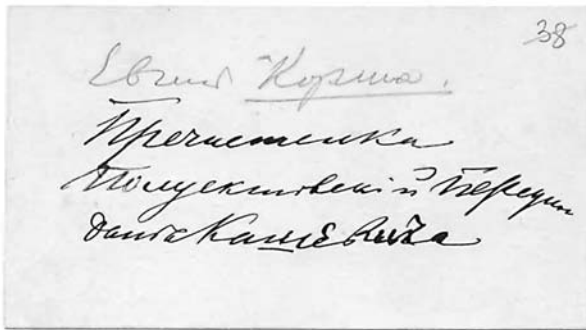 38
Евгеній Корша.
Пречистенка
Полуектовскій Переул
домъ Кашевича